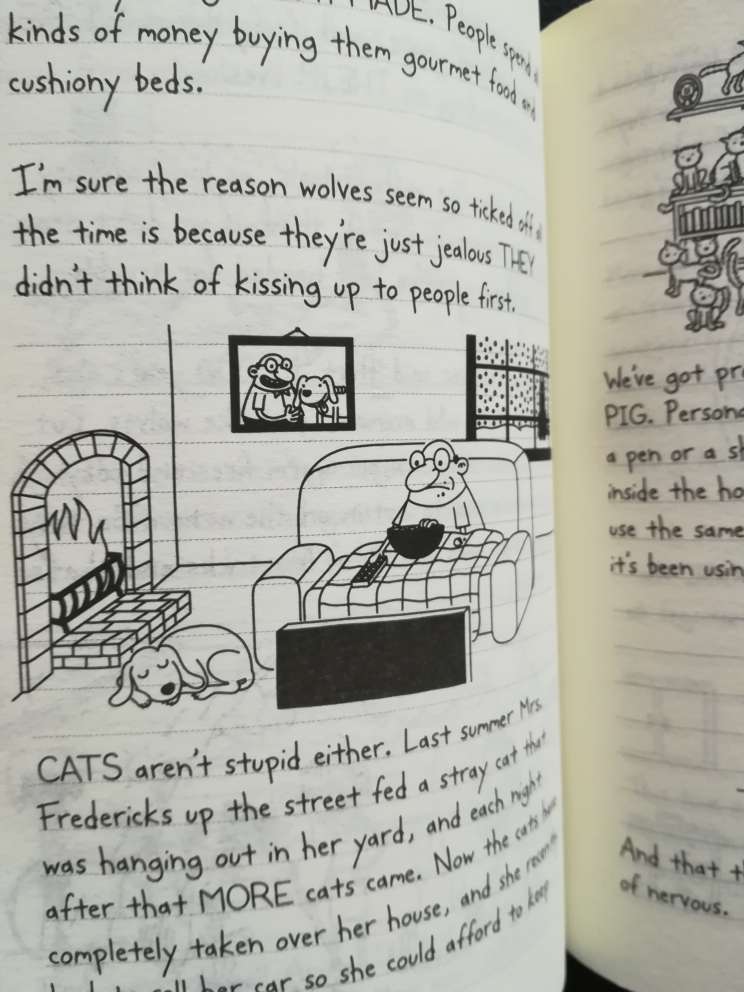 MADE. People spend
kinds of money buying them gourmet food and
cushiony beds.
I'm sure the reason wolves seem so ticked off
the time is because they're just jealous THEY
didn't think of kissing up to people first.
CATS aren't stupid either. Last summer Mrs.
Fredericks up the street fed a stray cat that
was hanging out in her yard, and each night
after that MORE cats came. Now the cats have
completely taken over her house, and she recently
her car so she could afford to keep
We've got
PIG.
a pen or a
inside the
use the same
it's been
And that
of nervous.